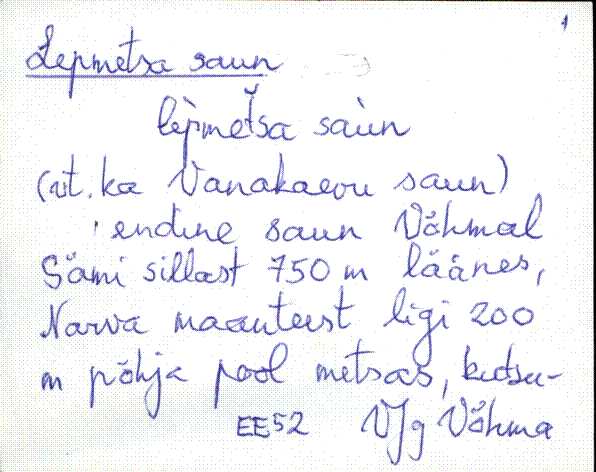 1
Lepmetsa saun
lèpmeťsa saùn
(vt. ka Vanakaevu saun)
endine saun Võhmal
Sämi sillast 750 m läänes,
Narva maanteest ligi 200
m põhja pool metsas, kutsu-
EE52 VJg Võhma